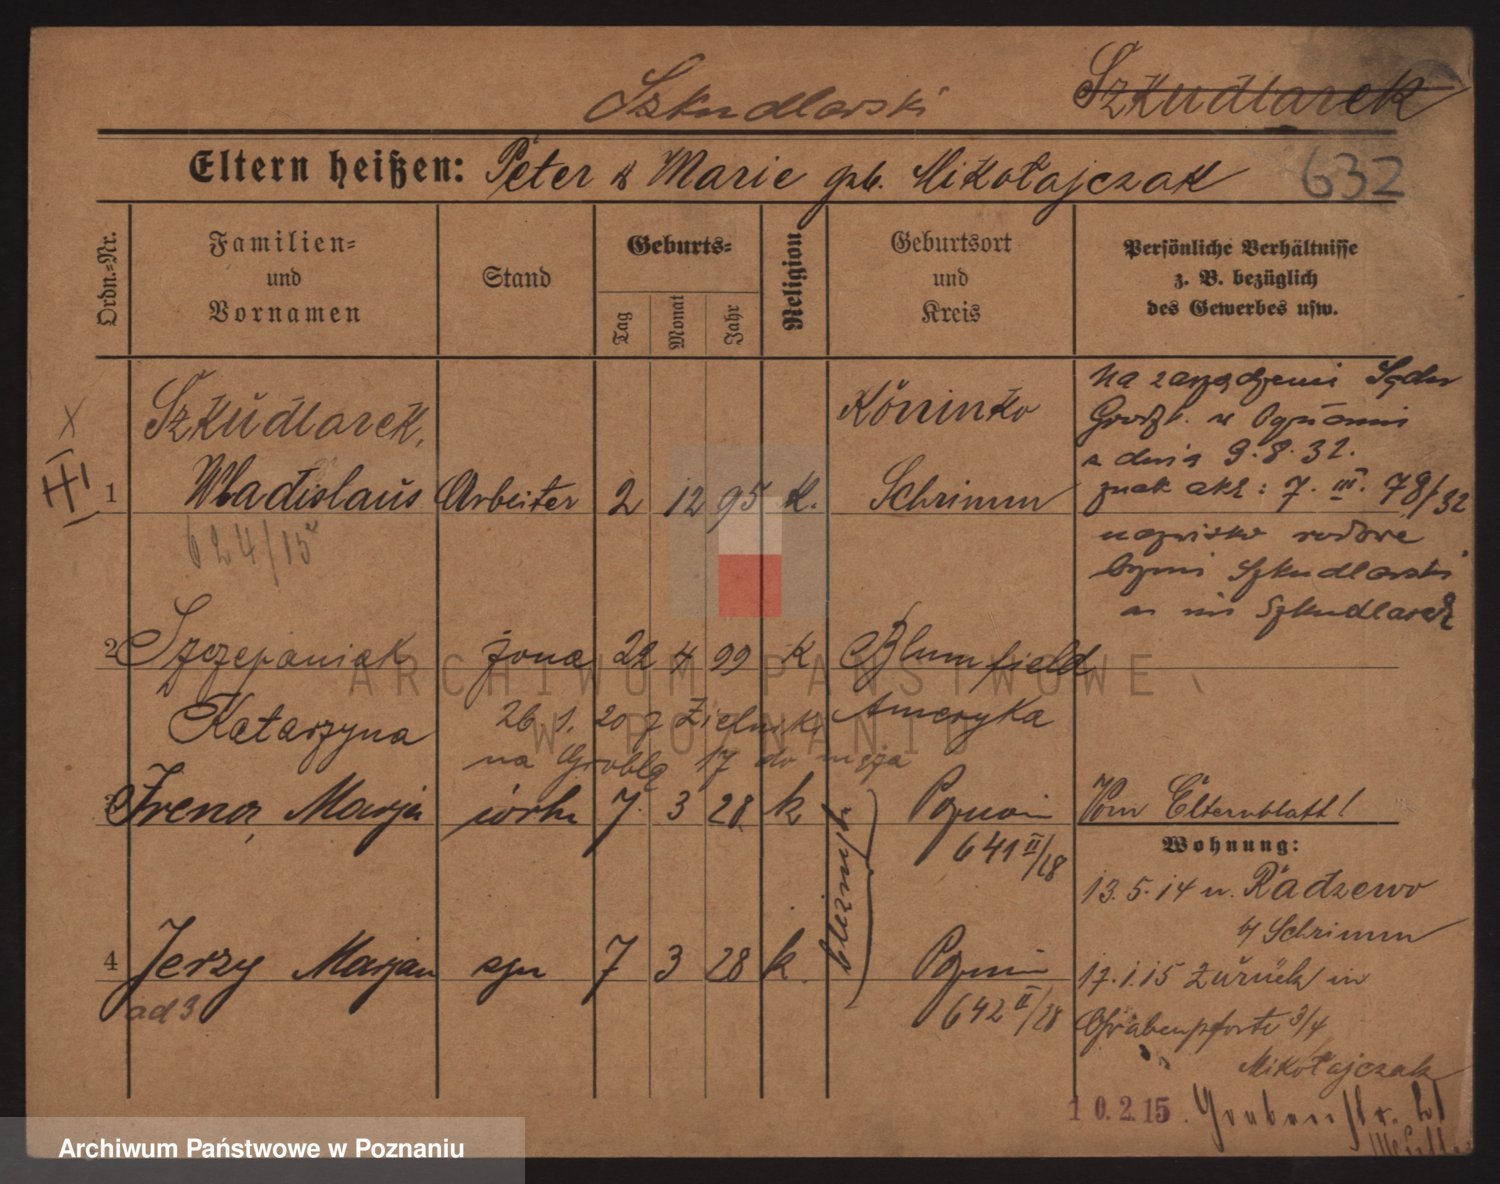 Szkudlarski
Szkudlarek
Eltern heißen: Peter & Marie geb. Mikołajczak
632
Ordn.=Nr.
Familien=
und
Vornamen
Stand
Geburts=
Tag
Monat
Jahr
Religion
Geburtsort
und
Kreis
Persönliche Verhältnisse
z. B. bezüglich
des Gewerbes usw.
X
1
Szkudlarek,
Wladislaus Arbeiter 2 12 95 K.
Koninko
Schrimm
624/15
Na zarządzenie Sądu
Grodzk. w Poznaniu
z dnia 9.8.32.
znak akt: 7. III. 78/32
nazwisko rodowe
brzmi Szkudlarski
a nie Szkudlarek
2 Szczepaniak żona 22 4 99 K Blumfield
Katarzyna
Ameryka
26 r. 20 z Zielnik
na Groblę 17 do męża
3 Irena, Marja córka 7. 3 28 k Poznań
641 II/28
bliźnięta
4 Jerzy Marjan syn 7 3 28 k. Poznań
642 II/28
ad 3
Vom Elternblatt!
Wohnung:
13.5.14 n. Radzewo
b/ Schrimm
17.1.15 zurück in
Grabenpforte 3/4
Mikołajczak
10.2.15. Grabenstr. 21
ARCHIWUM PAŃSTWOWE
W POZNANIU
Archiwum Państwowe w Poznaniu